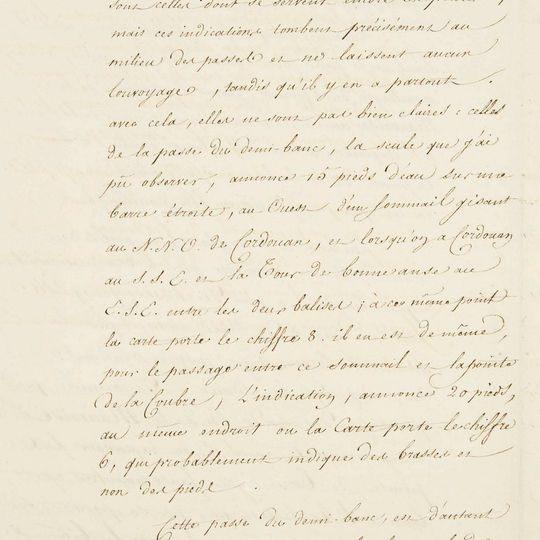 sont celles dont se servent encore
mais ces indications tombent précisément au
milieu des passes et ne laissent aucun
louvoyage, tandis qu'il y en a partout.
avec cela, elles ne sont pas bien claires : celles
de la passe du demi-banc, la seule que j'ai
pû observer, annonce 15 pieds d'eau sur une
barre étroite, au Ouest d'un sommail gisant
au N.N.O. de Cordouan, et lorsqu'on a Cordouan
au S.S.E. et la Tour de bonne anse au
E.S.E. entre les deux balises ; à ce même point
la carte porte le chiffre 8. il en est de même,
pour le passage entre ce sommail et la pointe
de la Coubre, L'indication, annonce 20 pieds,
au même endroit ou la Carte porte le chiffre
6, qui probablement indique des brasses et
non des pieds.
Cette passe du demi-banc, est d'autant